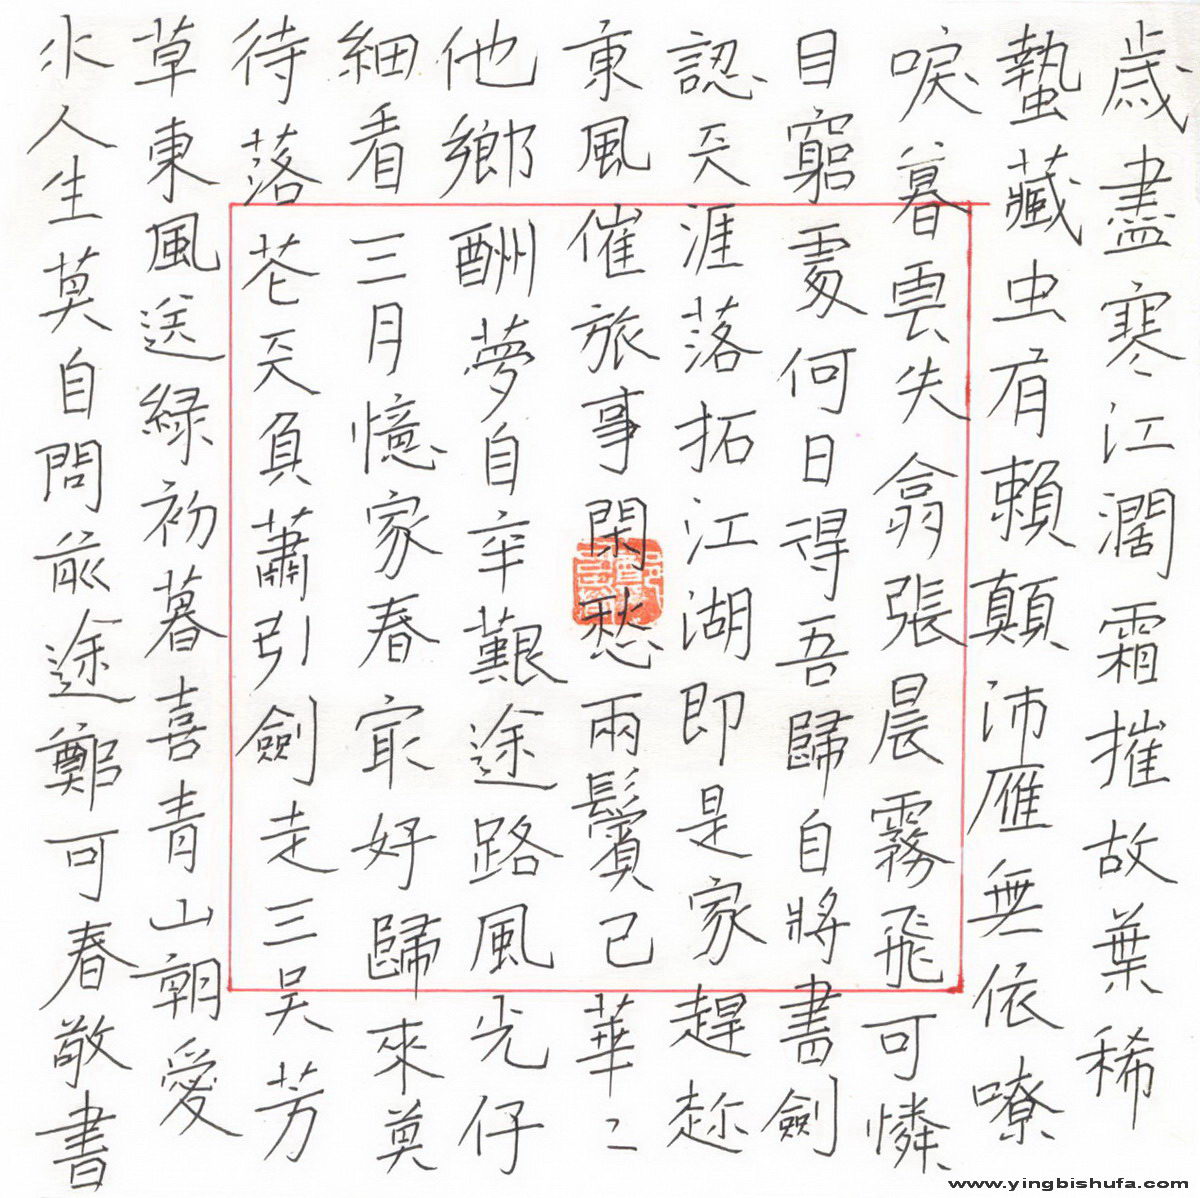 歳盡寒江濶霜摧故葉稀
蟄藏虫有賴顛沛雁無依嘹
唳暮雲失翕張晨霧飛可憐
目窮處何日得吾歸自將書劍
認天涯落拓江湖即是家趕趂
東風催旅事閑愁兩鬢已華〻
他鄉酬夢自辛艱途路風光仔
細看三月憶家春冣好歸來莫
待落花天負蕭引劍走三吴芳
草東風送緑初暮喜青山朝愛
水人生莫自問前途鄭可春敬書
www.yingbishufa.com